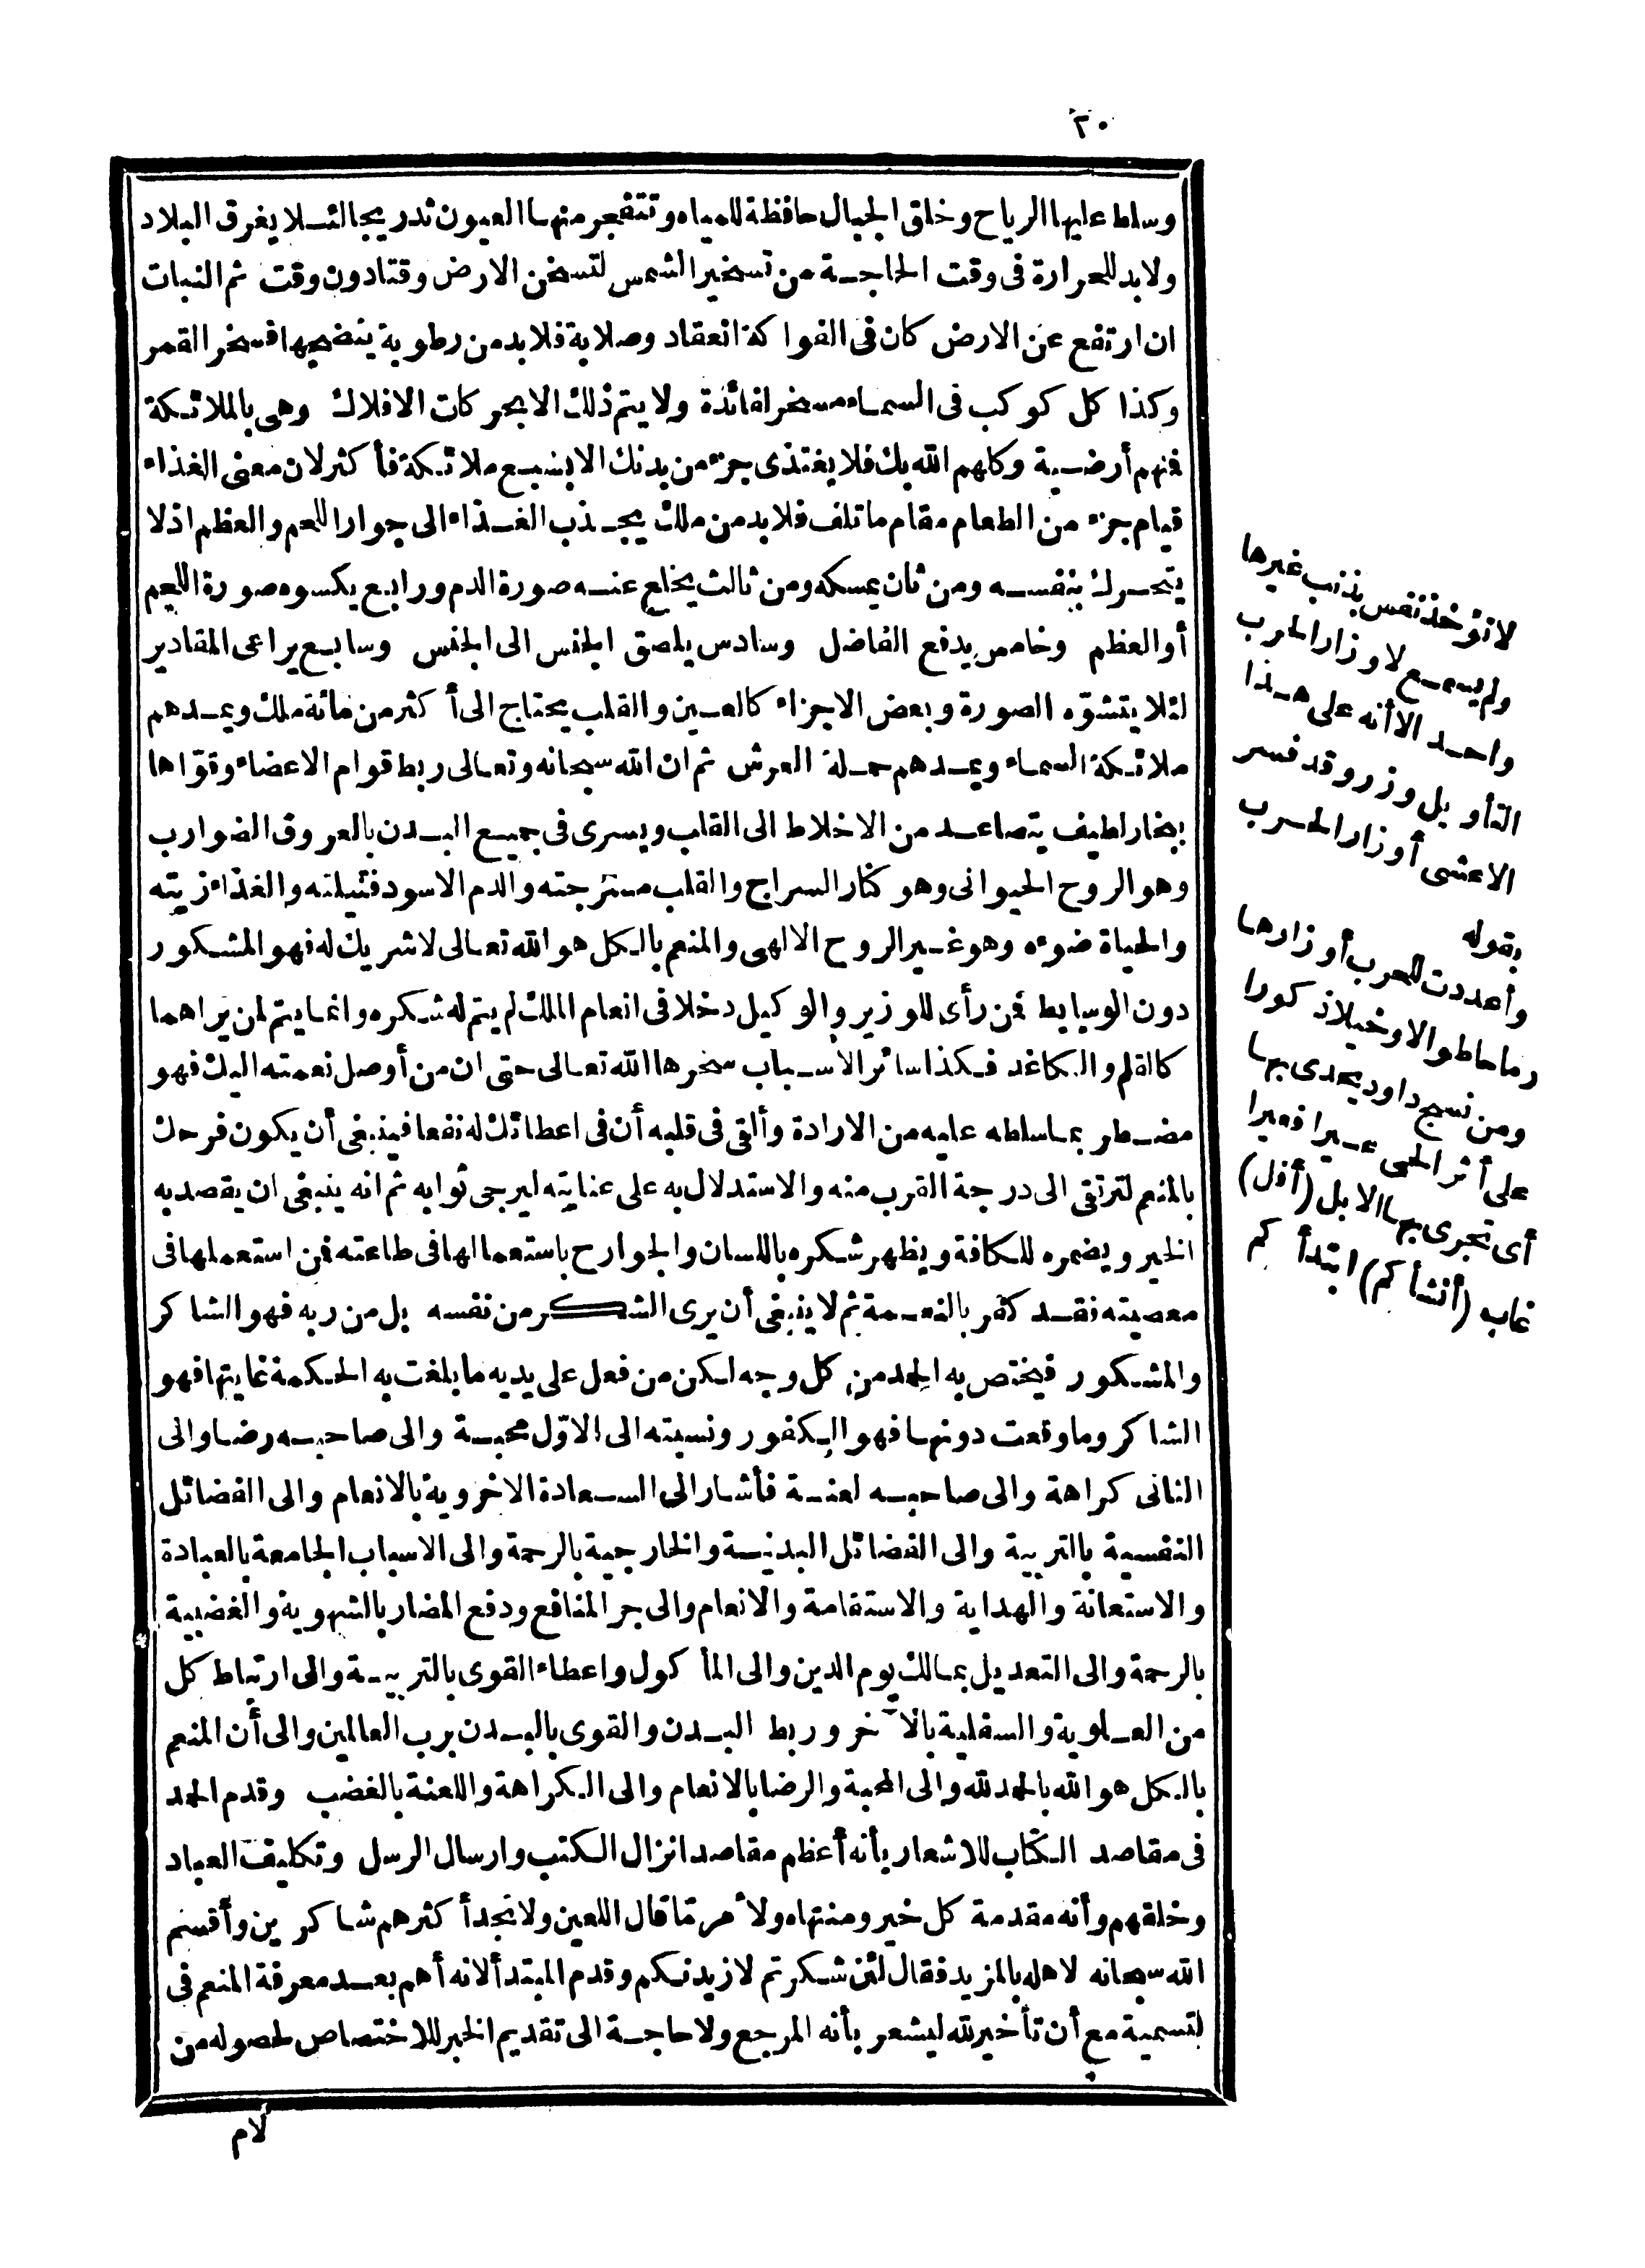 ٢٠
وسلط عليها الرياح وخلق الجبال حافظة للمياه وتتفجر منها العيون تدريجا لئلا يغرق البلاد
ولابد للحرارة فى وقت الحاجة من تسخير الشمس لتسخن الارض وقتا دون وقت ثم النبات
ان ارتفع عن الارض كان فى الفواكه انعقاد وصلابة فلا بد من رطوبة ينضجها فسخر القمر
وكذا كل كوكب فى السماء مسخر لفائدة ولا يتم ذلك الا بحركات الافلاك وهى بالملائكة
فنهم أرضية وكلهم الله بك فلا يغتذى جزء من بدنك الا بسبع ملائكة فأكثر لان معنى الغذاء
قيام جزء من الطعام مقام ما تلف فلا بد من ملك يجذب الغذاء الى جوار اللحم والعظم اذ لا
يتحرك بنفسه ومن ثان يمسكه ومن ثالث يخلع عنه صورة الدم ورابع يكسوه صورة اللحم
أو العظم وخامس يدفع الفاضل وسادس يلصق الجنس الى الجنس وسابع يراعى المقادير
لئلا يتشوّه الصورة وبعض الاجزاء كالعين والقلب يحتاج الى أكثر من مائة ملك ويمدهم
ملائكة السماء ويمدهم حملة العرش ثم ان الله سبحانه وتعالى ربط قوام الاعضاء وقوّاها
ببخار لطيف يتصاعد من الاخلاط الى القلب ويسرى فى جميع البدن بالعروق الضوارب
وهو الروح الحيوانى وهو كنار السراج والقلب مسترجته والدم الاسود فتيلته والغذاء زيته
والحياة ضوءه وهو غير الروح الالهى والمنعم بالكل هو الله تعالى لا شريك له فهو المشكور
دون الوسايط فمن رأى للوزير والوكيل دخلا فى انعام الملك لم يتم له شكره وانما يتم لمن يراهما
كالقلم والكاغد فكذا سائر الأسباب سخرها الله تعالى حتى ان من أوصل نعمته اليك فهو
مضطر بما سلطه عليه من الارادة وألقى فى قلبه أن فى اعطائك له نفعا فينبغى أن يكون فرحك
بالمنعم لترتقى الى درجة القرب منه والاستدلال به على عنايته ليرجى ثوابه ثم انه ينبغى ان يقصد به
الخير ويضمره للكافة ويظهر شكره باللسان والجوارح باستعمالها فى طاعته فمن استعملها فى
معصيته نقد كفر بالنعمة ثم لا ينبغى أن يرى الشكر من نفسه بل من ربه فهو الشاكر
والمشكور فيختص به الحمد من كل وجه لكن من فعل على يديه ما بلغت به الحكمة غايتها فهو
الشاكر وما وقعت دونها فهو الكفور ونسبته الى الاوّل محبة والى صاحبه رضا والى
الثانى كراهة والى صاحبه لعنة فأشار الى السعادة الاخروية بالانعام والى الفضائل
النفسية بالتربية والى الفضائل البدنية والخارجية بالرحمة والى الاسباب الجامعة بالعبادة
والاستعانة والهداية والاستقامة والانعام والى جر المنافع ودفع المضار بالشهوية والغضبية
بالرحمة والى التعديل بمالك يوم الدين والى المأكول واعطاء القوى بالتربية والى ارتباط كل
من العلوية والسفلية بالآخر وربط البدن والقوى بالبدن برب العالمين والى أن المنعم
بالكل هو الله بالحمد لله والى المحبة والرضا بالانعام والى الكراهة واللعنة بالغضب وقدم الحمد
فى مقاصد الكتاب للاشعار بأنه أعظم مقاصد انزال الكتب وارسال الرسل وتكليف العباد
وخلقهم وأنه مقدمة كل خير ومنتهاه ولأمر مّا قال اللعين ولا تجد أكثرهم شاكرين وأقسم
الله سبحانه لاهله بالمزيد فقال لئن شكرتم لازيدنكم وقدم المبتدأ لانه أهم بعد معرفة المنعم فى
لتسمية مع أن تأخير لله ليشعر بأنه المرجع ولا حاجة الى تقديم الخبر للاختصاص لحصوله من
لام
لا تؤخذ نفس بذنب غيرها
ولم يسمع لاوزار الحرب
واحد الا أنه على هذا
التأويل وزر وقد فسر
الاعشى أوزار الحرب
بقوله
وأعددت للحرب أوزارها
رماحا طوالا وخيلا ذكورا
ومن نسج داود يحدى بها
على أثر الحى عيرا فعيرا
أى تجرى بها الابل (أفل)
غاب (أنشأكم) ابتدأكم